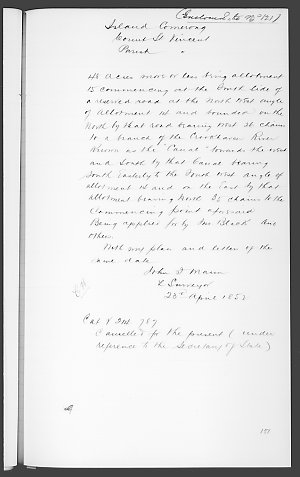 (Enclosed to No 121)
Island Comerong
County St Vincent
Parish "
45 Acres more or less being allotment
15 commencing at the South side of
a reserved road at the North West angle
of allotment 14 and bounded on the
North by that road bearing West 36 chains
to a branch of the Crookhaven River
Known as the "Canal" towards the West
and South by that Canal bearing
South Easterly to the South West angle of
allotment 14 and on the East by that
allotment bearing North 36 chains to the
Commencing point aforesaid
Being applied for by Mr Black and
others
With my plan and letter of the
same date
John F Mann
L Surveyor
23rd April 1852
Cat V 787
Cancelled for the present (under
reference to the Secretary of State)
151